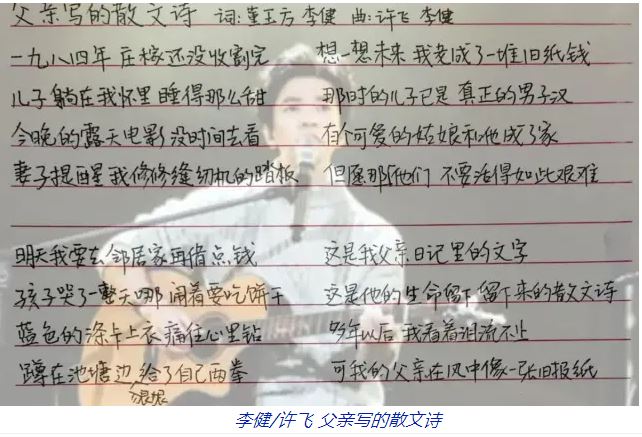 父亲写的散文诗 词:董玉方 李健 曲:许飞 李健
一九八四年 庄稼还没收割完
儿子躺在我怀里 睡得那么甜
今晚的露天电影 没时间去看
妻子提醒我修修缝纫机的踏板
明天我要去邻居家再借点钱
孩子哭了一整天哪 闹着要吃饼干
蓝色的涤卡上衣 痛往心里钻
蹲在池塘边 给了自己两拳
狠狠
想一想未来 我老成了一堆旧纸钱
那时的儿子已是 真正的男子汉
有个可爱的姑娘和他成了家
但愿他们 不要活得如此艰难
这是我父亲日记里的文字
这是他的生命留下 留下来的散文诗
多年以后 我看着泪流不止
可我的父亲在风中像一张旧报纸
李健/许飞 父亲写的散文诗